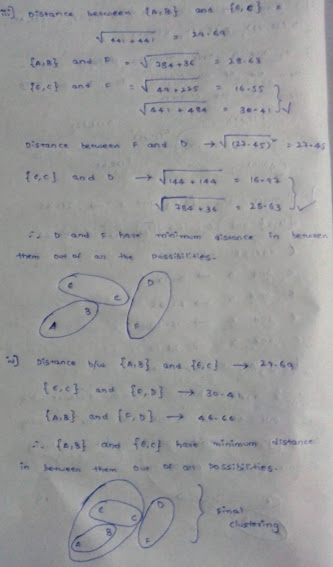 iii] Distance between {A,B} and {E,C} =
√441+441 = 29.69
{A,B} and F = √784+36 = 28.63
{E,C} and F = √49+225 = 16.55
√441+484 = 30.41
Distance between F and D → √(27.45)² = 27.45
{E,C} and D → √144+144 = 16.97
√784+36 = 28.63
∴ D and F have minimum distance in between
them out of all the possibilities.
E
C
D
B
A
F
iv] Distance b/w {A,B} and {E,C} → 29.69
{E,C} and {F,D} → 30.41
{A,B} and {F,D} → 46.66
∴ {A,B} and {E,C} have minimum distance
in between them out of all possibilities.
E
C
D
A
B
F
Final
clustering